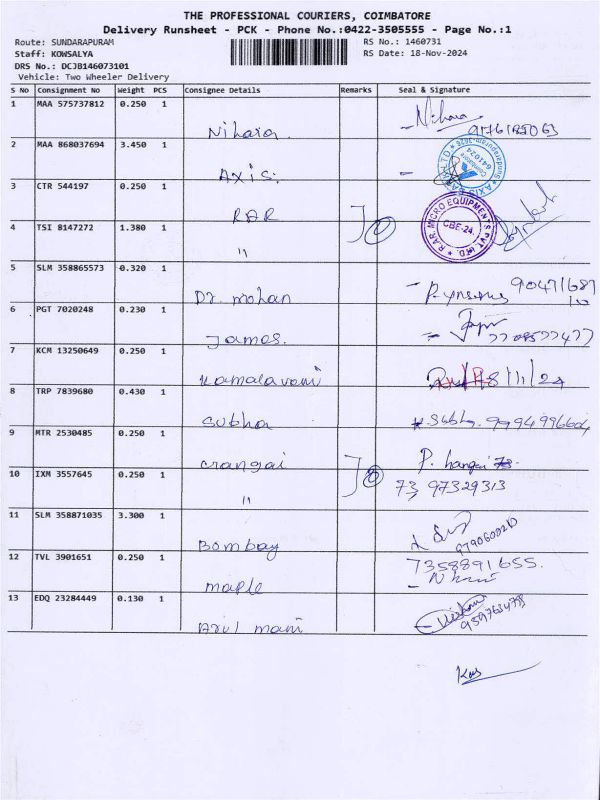 THE PROFESSIONAL COURIERS, COIMBATORE
Delivery Runsheet - PCK - Phone No.:0422-3505555 - Page No.:1
Route: SUNDARAPURAM RS No.: 1460731
Staff: KOWSALYA RS Date: 18-Nov-2024
DRS No.: DCJB146073101
Vehicle: Two Wheeler Delivery
S No Consignment No Weight PCS Consignee Details Remarks Seal & Signature
1 MAA 575737812 0.250 1 Nihara Nihara
2 MAA 868037694 3.450 1 AXIS. AXIS 641024
3 CTR 544197 0.250 1 RAR R.A.R. MICRO EQUIPMENTS PVT. LTD. CBE-24.
4 TSI 8147272 1.380 1 "
5 SLM 358865573 0.320 1 Dr. mohan
6 PGT 7020248 0.230 1 James. 7708577477
7 KCM 13250649 0.250 1 Kamalavani 18/11/24
8 TRP 7839680 0.430 1 Subha Subha. 9994996604
9 MTR 2530485 0.250 1
10 IXM 3557645 0.250 1 " 73, 97329313
11 SLM 358871035 3.300 1 Bombay
12 TVL 3901651 0.250 1 maple 7358891655.
13 EDQ 23284449 0.130 1 Arul mani